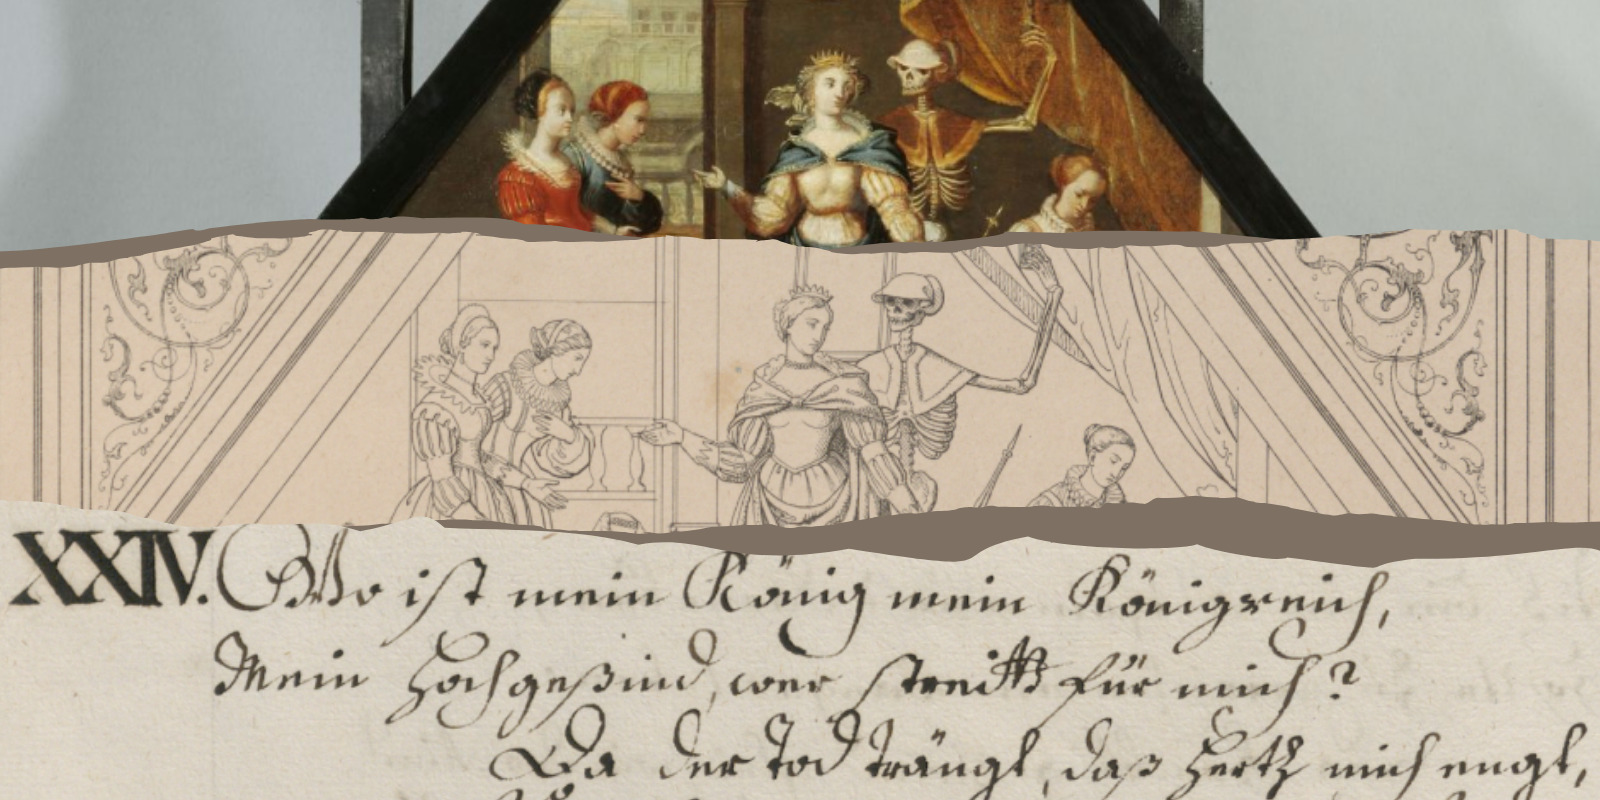 XXIV. Wo ist mein König mein Königreich,
Mein Hochgeßind, wer streitt für mich?
Da der Tod trängt, daß Hertz mich engt,